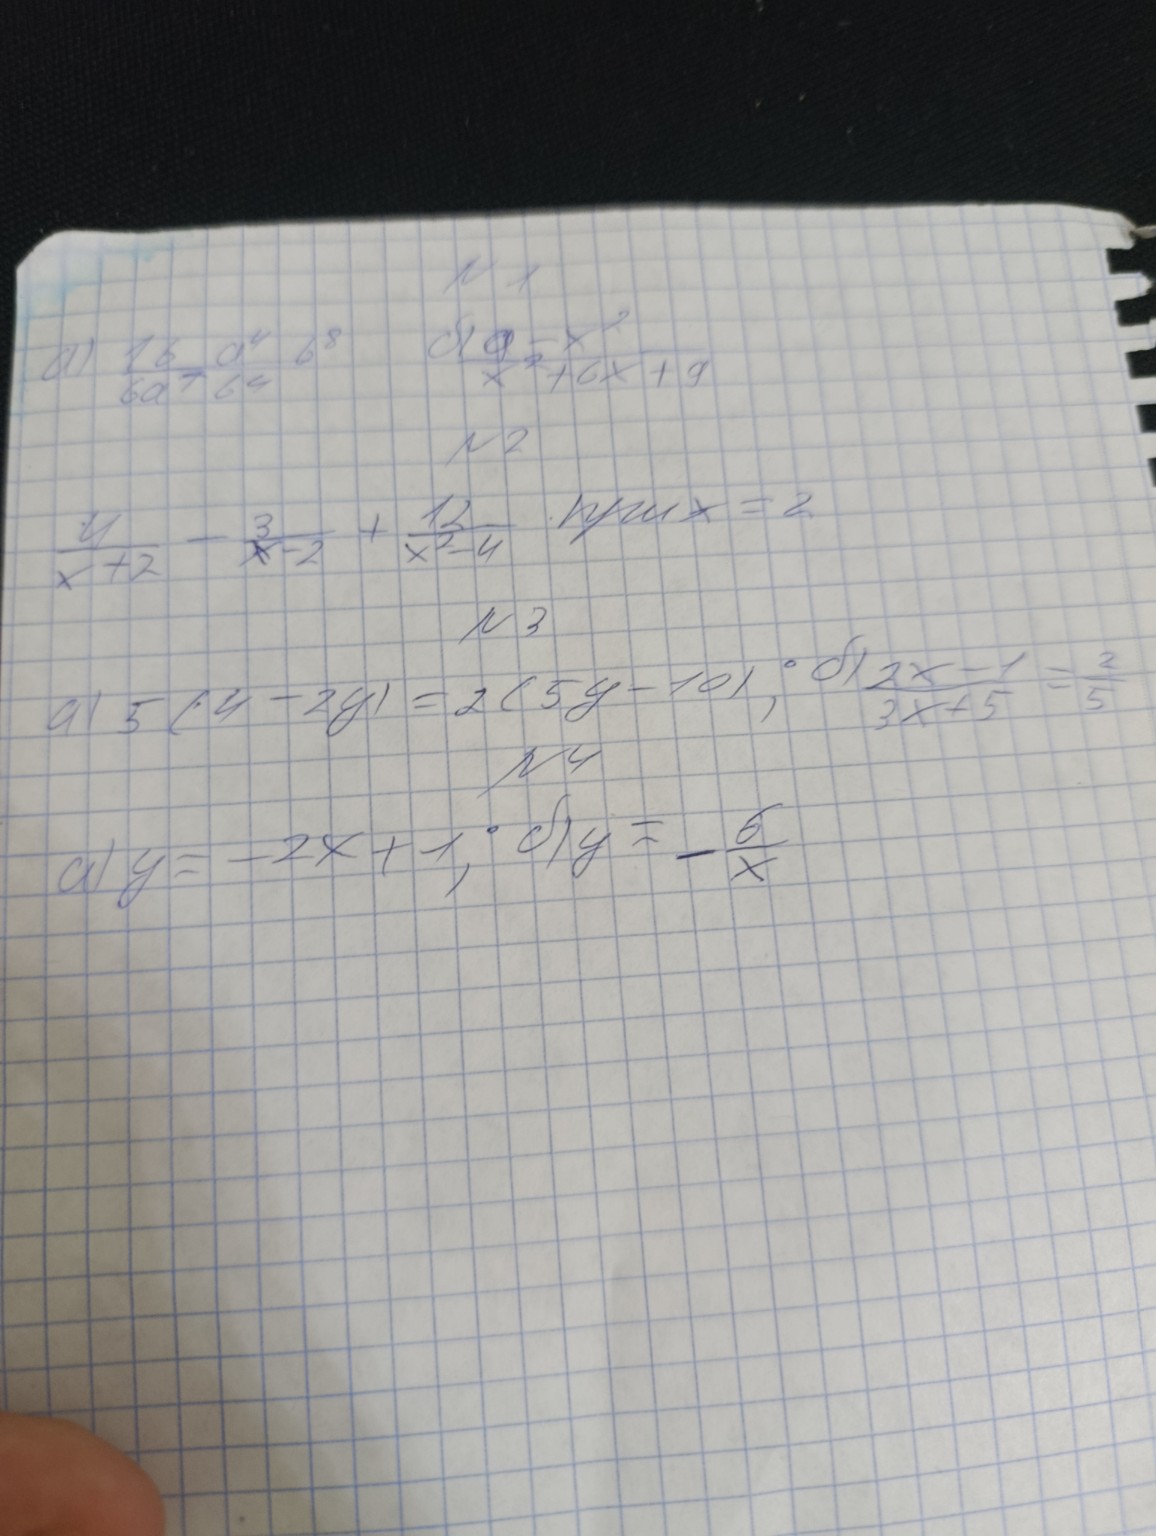 N 1
а) 16 a⁴ b⁸ / 6a⁷ b⁴ б) 9 - x² / x² + 6x + 9
N 2
4/(x+2) - 3/(x-2) + 12/(x²-4) при x = 2
N 3
а) 5(4 - 2y) = 2(5y - 10); б) (2x - 1)/(3x + 5) = 2/5
N 4
а) y = -2x + 1; б) y = - 6/x